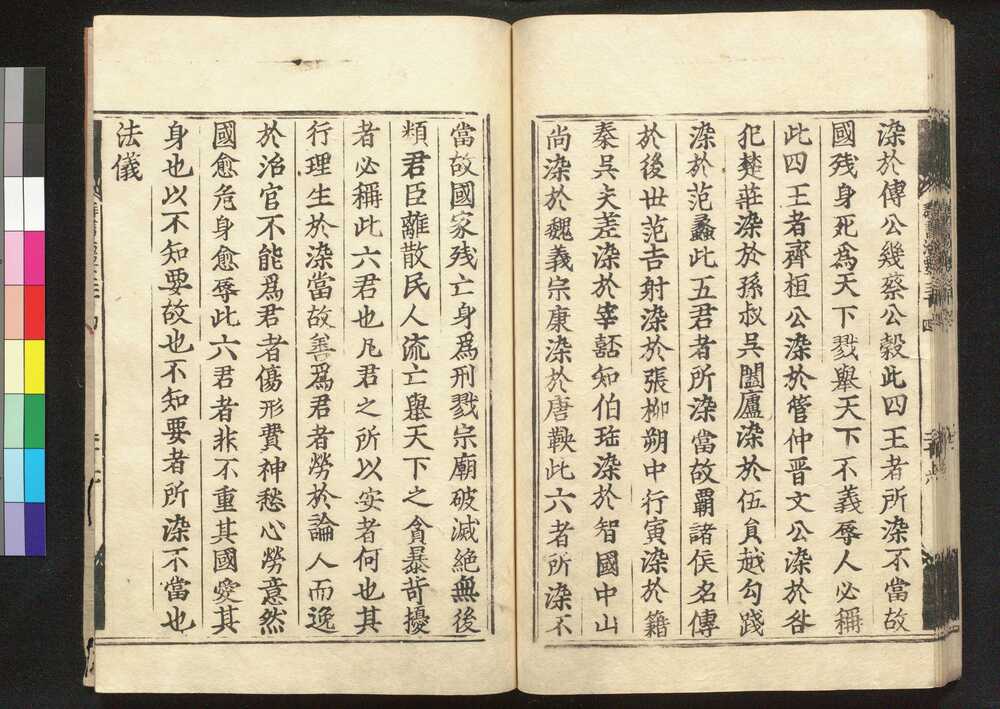 染於傅公幾蔡公穀此四王者所染不當故
國残身死爲天下戮舉天下不義辱人必稱
此四王者齊桓公染於管仲晋文公染於咎
犯楚莊染於孫叔呉闔廬染於伍負越勾踐
染於范蠡此五君者所染當故覇諸侯名傳
於後世范吉射染於張柳朔中行寅染於籍
秦呉夫差染於宰嚭知伯瑤染於智國中山
尚染於魏義宗康染於唐鞅此六者所染不
當故國家残亡身爲刑戮宗廟破滅絶無後
類君臣離散民人流亡舉天下之貪暴苛擾
者必稱此六君也凡君之所以安者何也其
行理生於染當故善爲君者勞於論人而逸
於治官不能爲君者傷形費神愁心勞意然
國愈危身愈辱此六君者非不重其國愛其
身也以不知要故也不知要者所染不當也
法儀